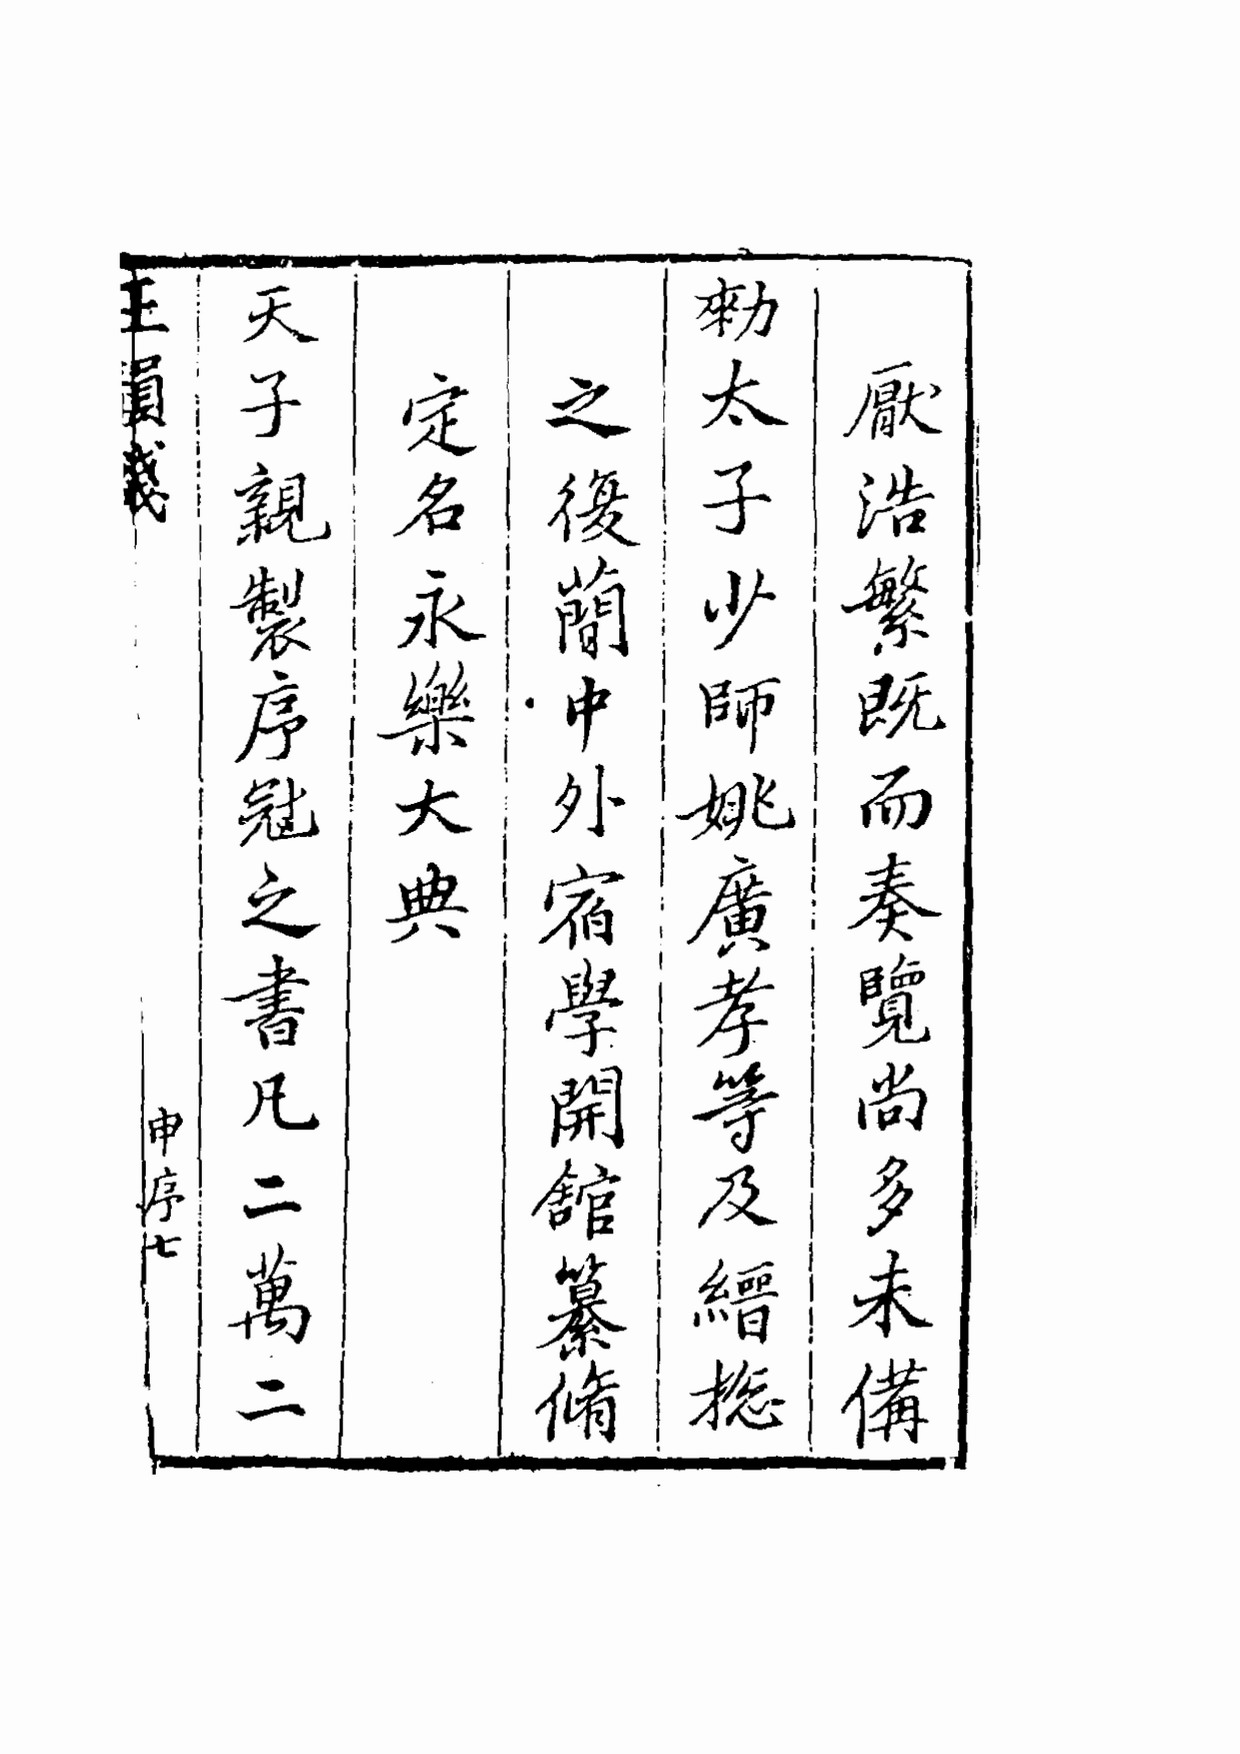 厭浩繁既而奏覽尚多未備
勑太子少師姚廣孝等及縉揔
之復簡中外宿學開舘纂脩
定名永樂大典
天子親製序冠之書凡二萬二
玉韻箋
申序七